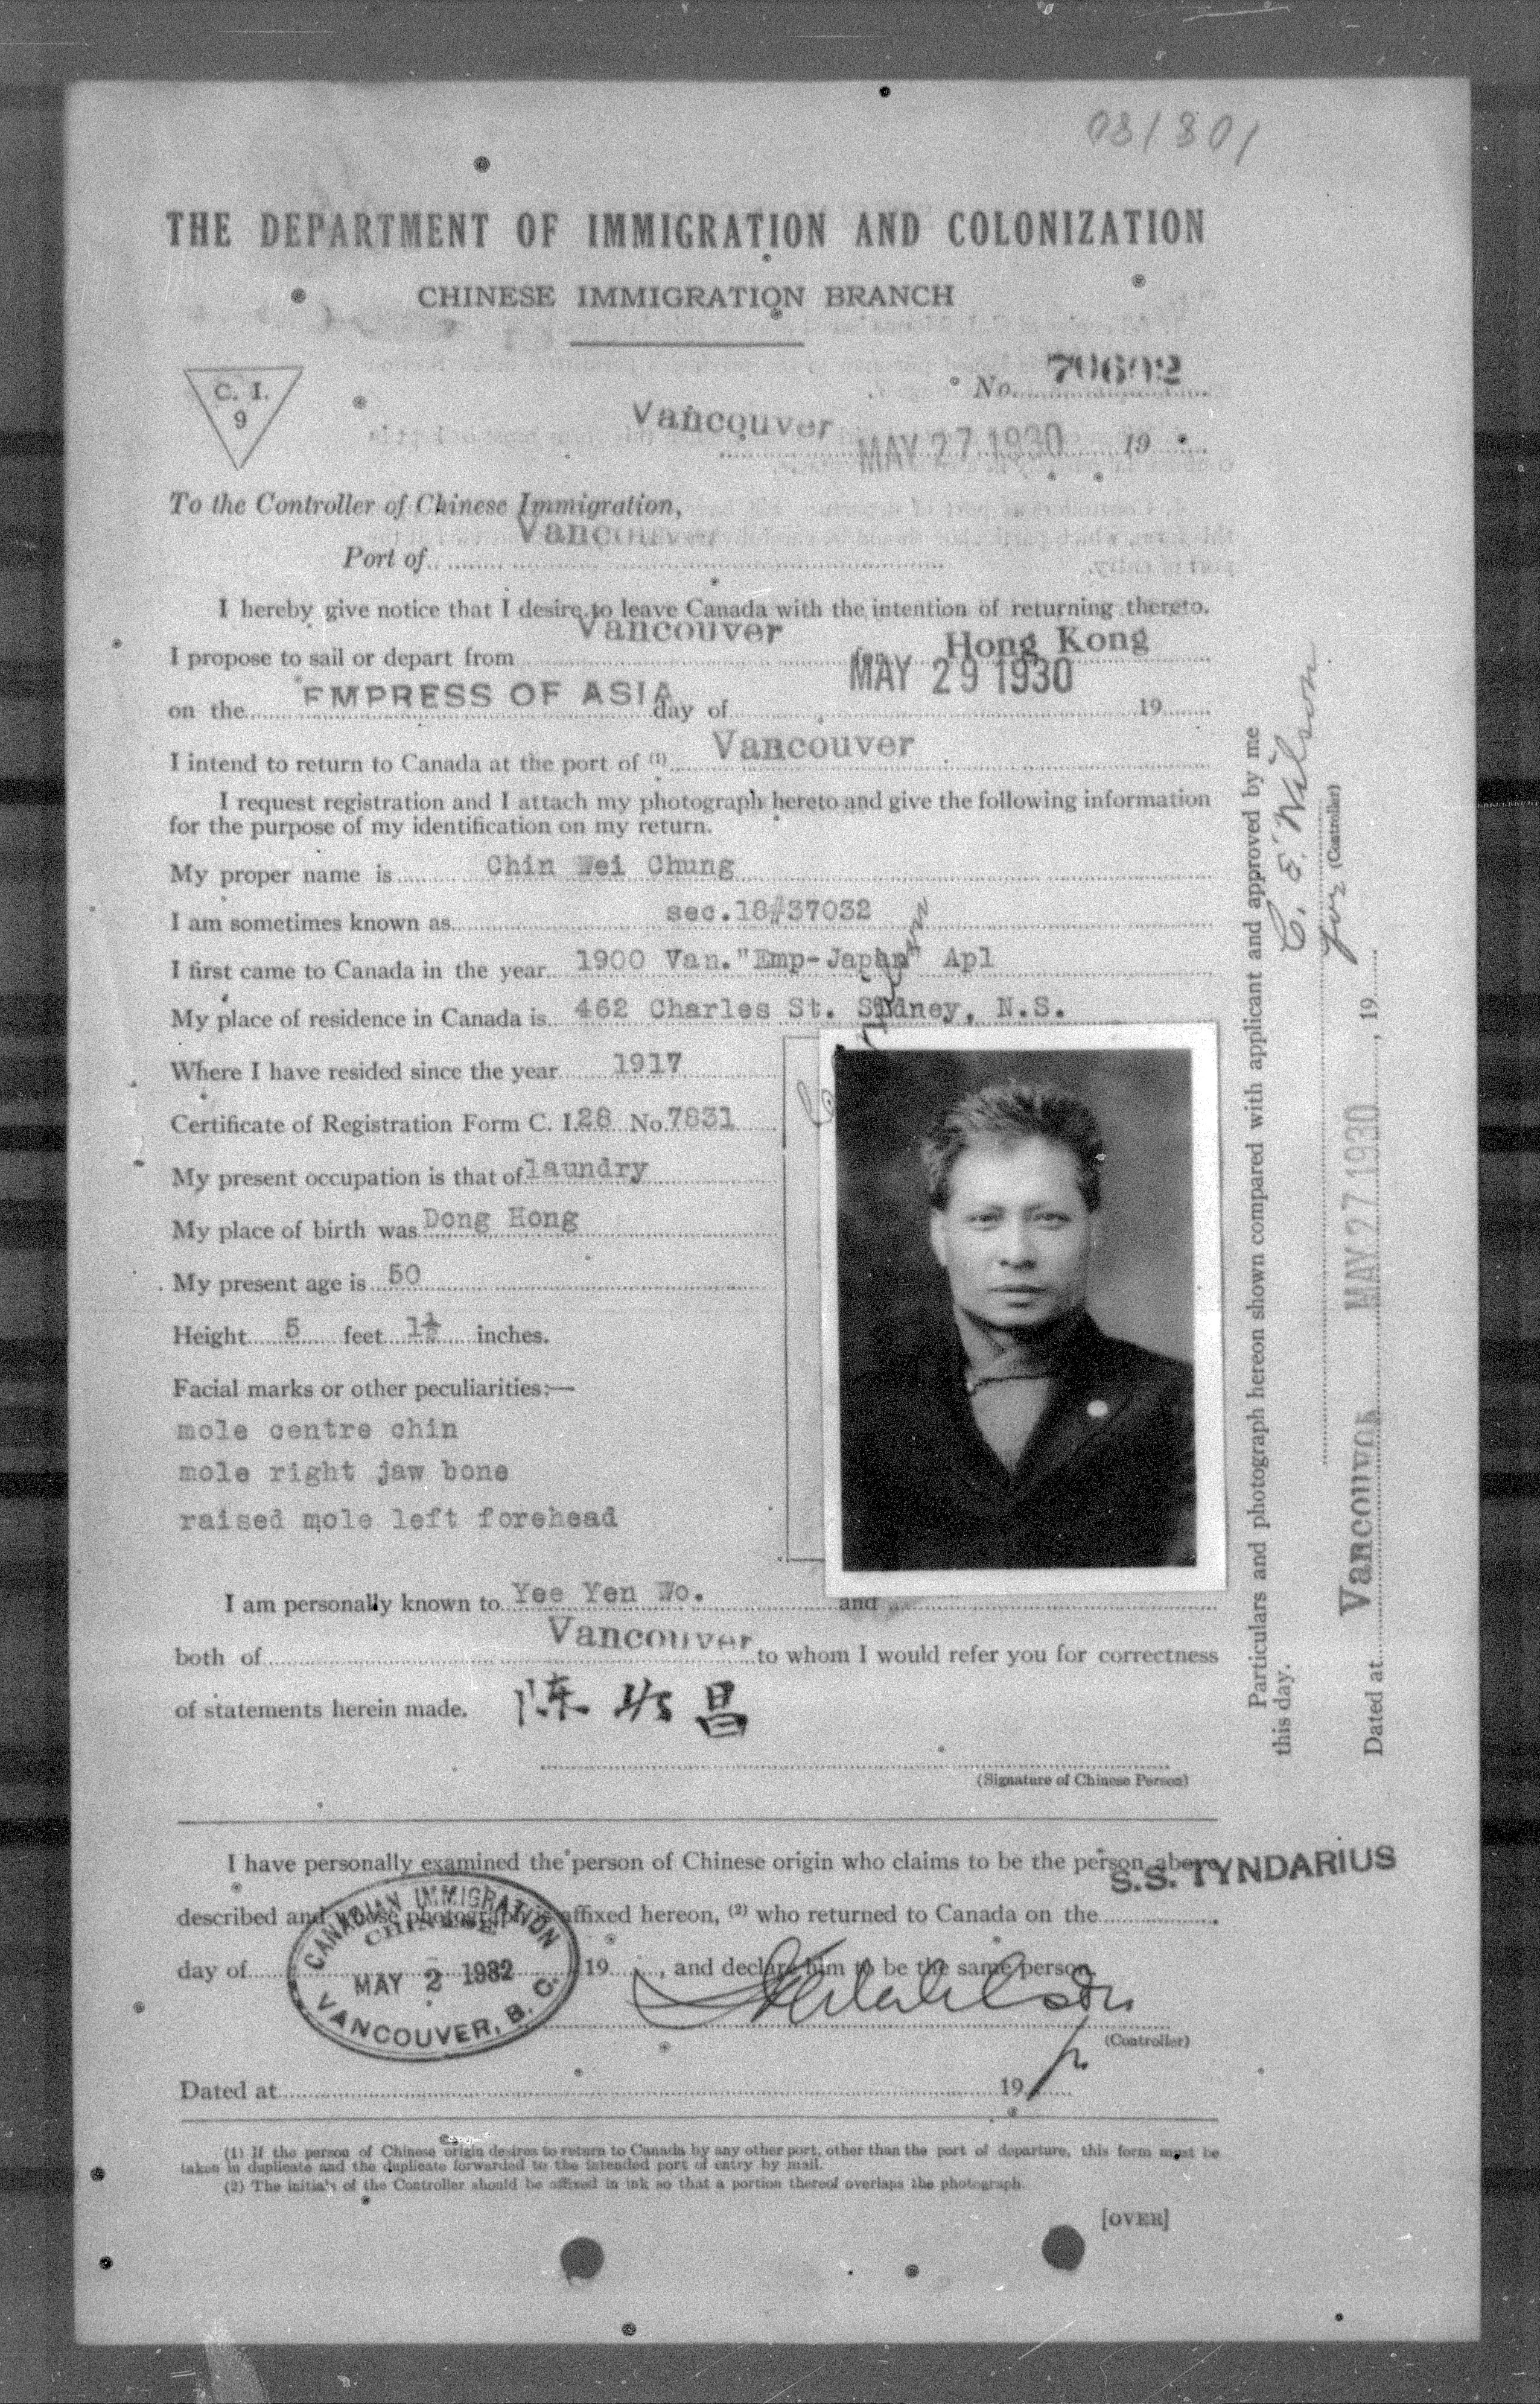 031801
THE DEPARTMENT OF IMMIGRATION AND COLONIZATION
CHINESE IMMIGRATION BRANCH
C. I.
9
No. 70692
Vancouver MAY 27 1930 19
To the Controller of Chinese Immigration,
Port of Vancouver
I hereby give notice that I desire to leave Canada with the intention of returning thereto.
I propose to sail or depart from Vancouver for Hong Kong
on the EMPRESS OF ASIA day of MAY 29 1930 19
I intend to return to Canada at the port of (1) Vancouver
I request registration and I attach my photograph hereto and give the following information
for the purpose of my identification on my return.
My proper name is Chin Wei Chung
I am sometimes known as sec.18#37032
I first came to Canada in the year 1900 Van."Emp-Japan" Apl
My place of residence in Canada is 462 Charles St. Sydney, N.S.
Where I have resided since the year 1917
Certificate of Registration Form C. I. 28 No. 7831
My present occupation is that of laundry
My place of birth was Dong Hong
My present age is 50
Height 5 feet 1½ inches.
Facial marks or other peculiarities:—
mole centre chin
mole right jaw bone
raised mole left forehead
I am personally known to Yee Yen Wo. and
both of Vancouver to whom I would refer you for correctness
of statements herein made. 陈 昌
(Signature of Chinese Person)
I have personally examined the person of Chinese origin who claims to be the person above
S.S. TYNDARIUS
described and whose photograph is affixed hereon, (2) who returned to Canada on the
day of 19 , and declare him to be the same person.
CANADIAN IMMIGRATION
CHINESE
MAY 2 1932
VANCOUVER, B. C.
(Controller)
Dated at 19
(1) If the person of Chinese origin desires to return to Canada by any other port, other than the port of departure, this form must be
taken in duplicate and the duplicate forwarded to the intended port of entry by mail.
(2) The initials of the Controller should be affixed in ink so that a portion thereof overlaps the photograph.
[OVER]
Particulars and photograph hereon shown compared with applicant and approved by me
this day.
C. E. Wilson
for (Controller)
Dated at Vancouver MAY 27 1930, 19